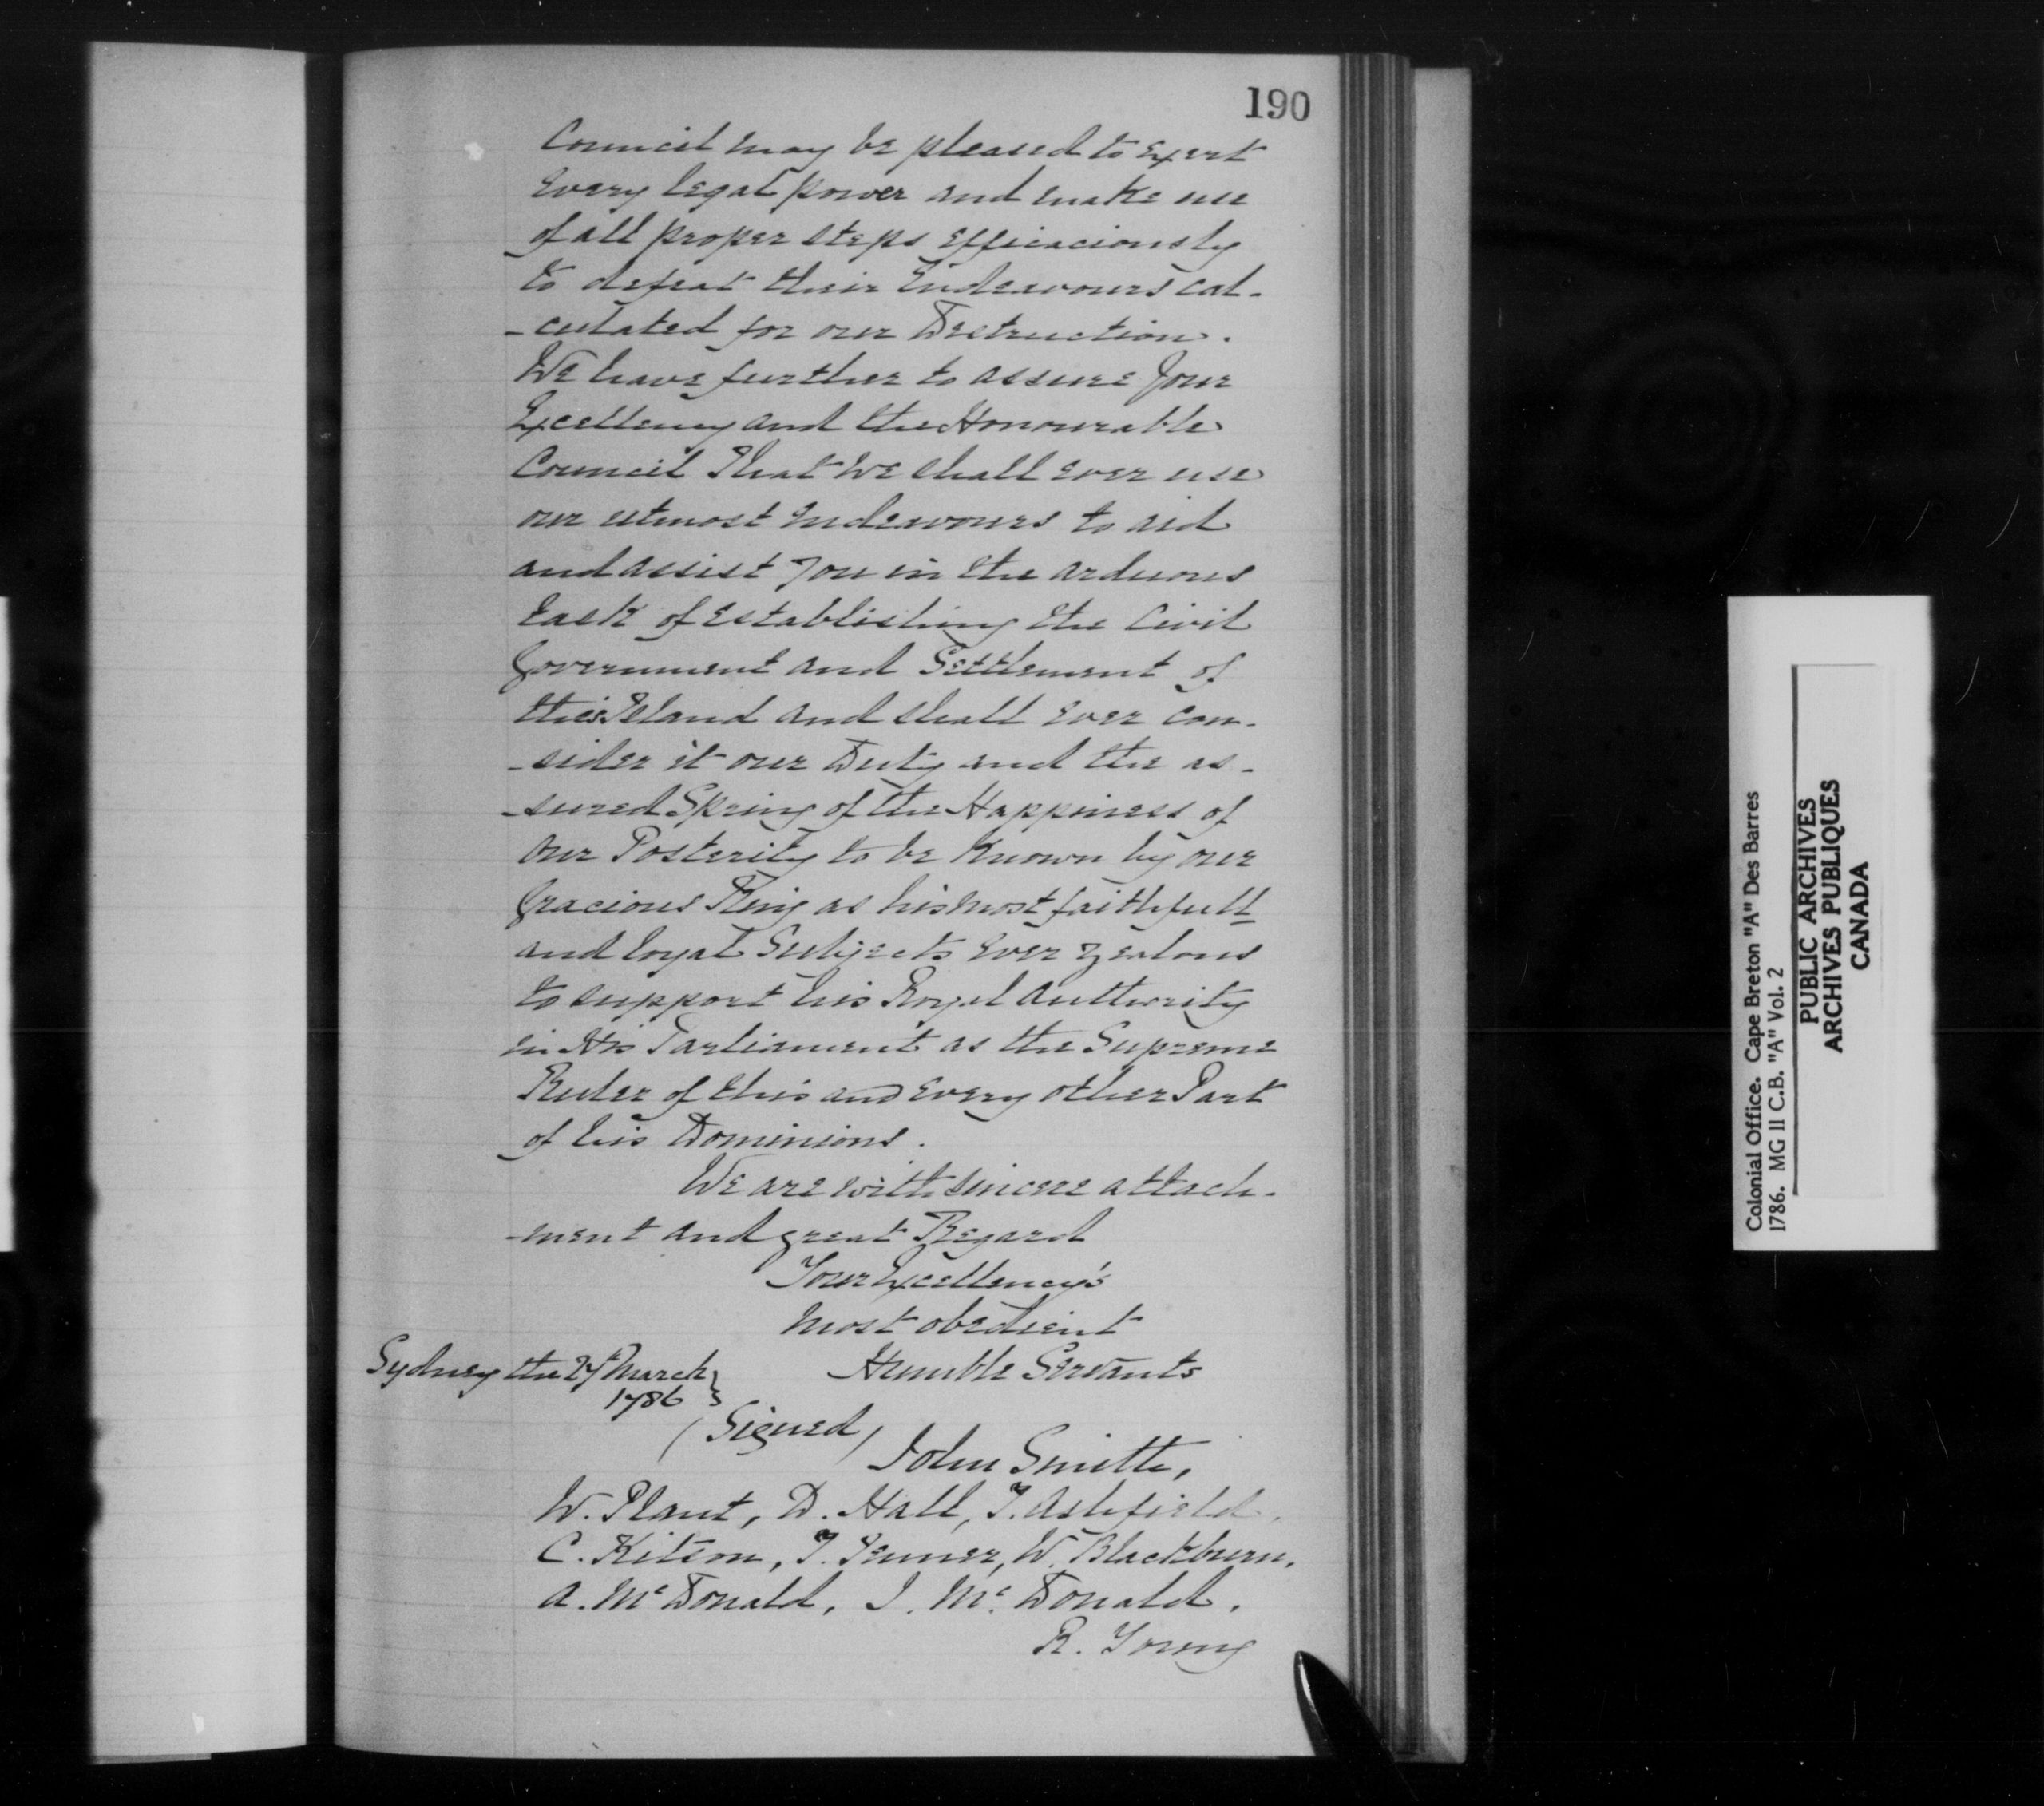 190
Council may be pleased to Exert
Every legal power and make use
of all proper steps Efficaciously
to defeat their Endeavours cal-
-culated for our Destruction.
We have further to assure Your
Excellency and the Honourable
Council That We shall ever use
our utmost Endeavours to aid
and assist You in the arduous
task of Establishing the Civil
Government and Settlement of
this Island and shall Ever Con-
-sider it our Duty and the as-
-sured Spring of the Happiness of
Our Posterity to be Known by our
Gracious King as his most faithfull
and loyal Subjects Ever Zealous
to support his Royal Authority
in His Parliament as the Supreme
Ruler of this and Every other Part
of his Dominions.
We are with sincere attach-
-ment and great Regard
Your Excellency's
Most obedient
Humble Servants
Sydney the March
1786
(Signed)
John Smith,
W. Plant, D. Hall, T. Ashfield,
C. Kitson, T. W. Blackburn,
A. McDonald, J. Mc. Donald,
R. Young
Colonial Office. Cape Breton "A" Des Barres
1786. MG 11 C.B. "A" Vol. 2
PUBLIC ARCHIVES
ARCHIVES PUBLIQUES
CANADA